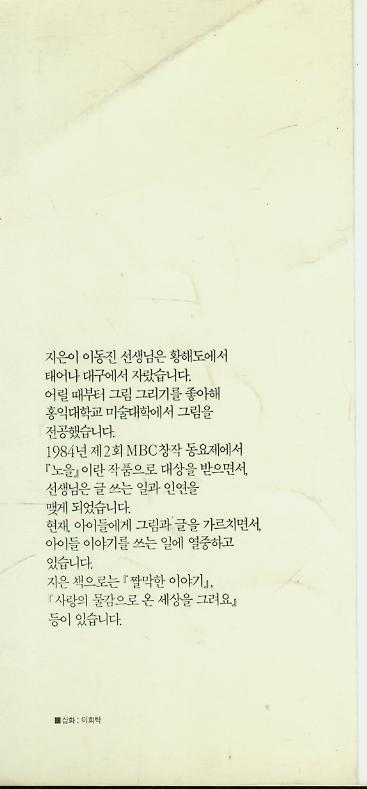 지은이 이동진 선생님은 황해도에서
태어나 대구에서 자랐습니다.
어릴 때부터 그림 그리기를 좋아해
홍익대학교 미술대학에서 그림을
전공했습니다.
1984년 제2회 MBC창작 동요제에서
『노을』이란 작품으로 대상을 받으면서,
선생님은 글 쓰는 일과 인연을
맺게 되었습니다.
현재, 아이들에게 그림과 글을 가르치면서,
아이들 이야기를 쓰는 일에 열중하고
있습니다.
지은 책으로는 『짤막한 이야기』,
『사랑의 물감으로 온 세상을 그려요』
등이 있습니다.
■삽화 : 이희탁